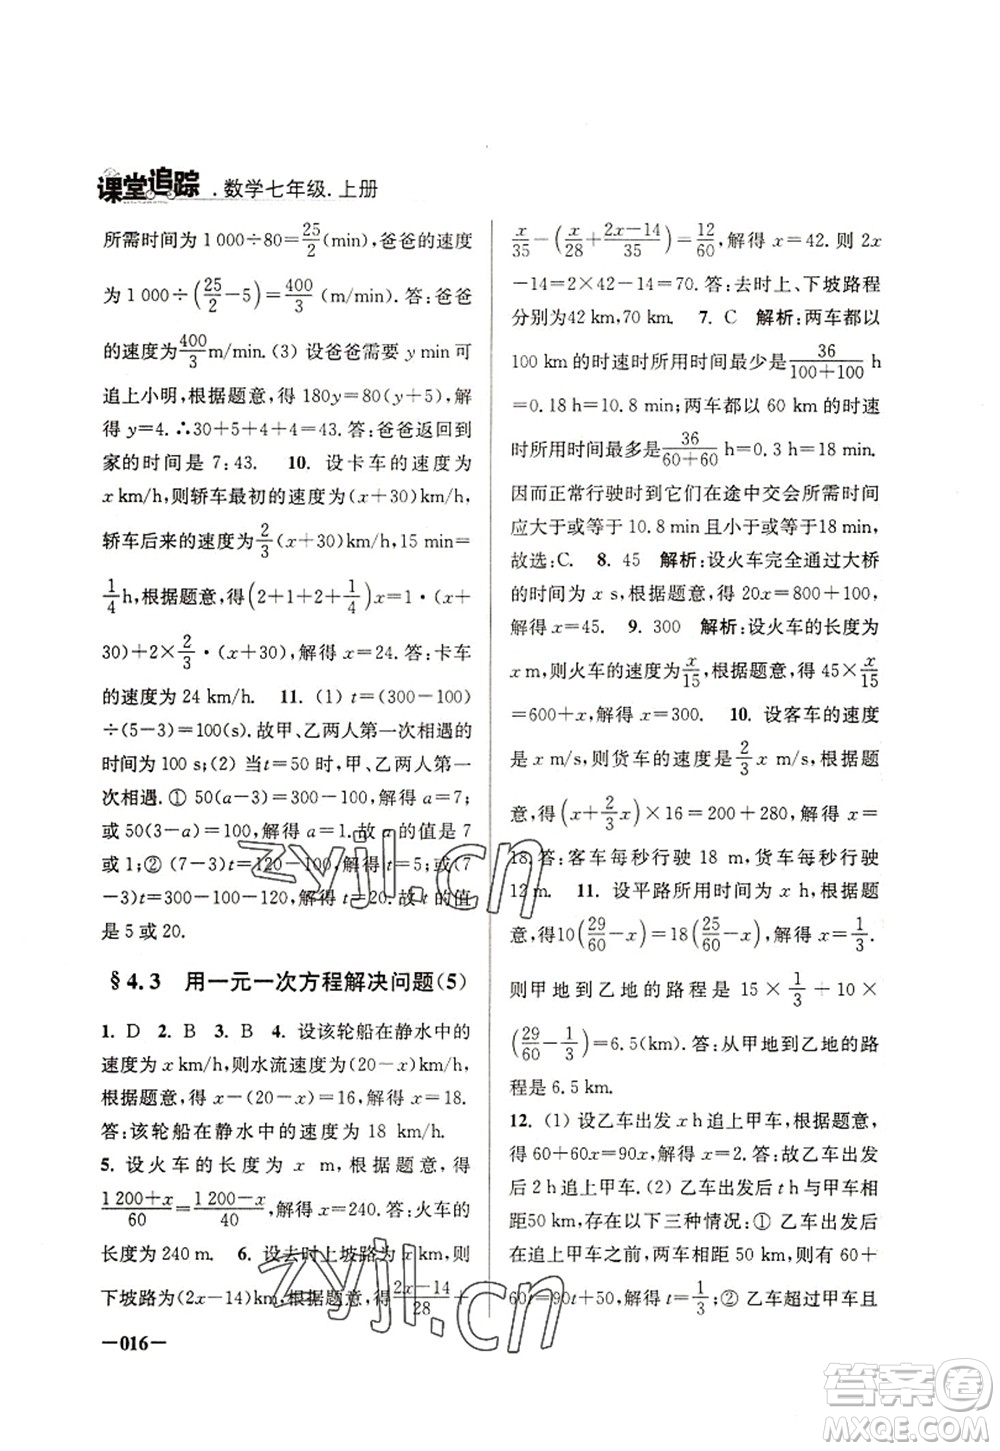 课堂追踪.数学七年级.上册
所需时间为1 000÷80=25/2(min),爸爸的速度
为1 000÷(25/2-5)=400/3(m/min).答:爸爸
的速度为400/3m/min.(3) 设爸爸需要 y min可
追上小明,根据题意,得 180y=80(y+5),解
得 y=4.∴30+5+4+4=43.答:爸爸返回到
家的时间是 7:43. 10. 设卡车的速度为
x km/h,则轿车最初的速度为(x+30)km/h,
轿车后来的速度为2/3(x+30)km/h,15 min=
1/4h,根据题意,得(2+1+2+1/4)x=1·(x+
30)+2×2/3·(x+30),解得 x=24.答:卡车
的速度为 24 km/h. 11. (1) t=(300-100)
÷(5-3)=100(s).故甲、乙两人第一次相遇的
时间为100 s;(2) 当t=50 时,甲、乙两人第一
次相遇.① 50(a-3)=300-100,解得 a=7;
或50(3-a)=100,解得 a=1.故 a 的值是 7
或1;② (7-3)t=120-100,解得 t=5;或(7
-3)t=300-100-120,解得 t=20.故 t 的值
是 5 或 20.
§4.3 用一元一次方程解决问题(5)
1. D 2. B 3. B 4. 设该轮船在静水中的
速度为 x km/h,则水流速度为(20-x)km/h,
根据题意,得 x-(20-x)=16,解得 x=18.
答:该轮船在静水中的速度为 18 km/h.
5. 设火车的长度为 x m,根据题意,得
(1 200+x)/60=(1 200-x)/40,解得 x=240.答:火车的
长度为 240 m. 6. 设去时上坡路为 x km,则
下坡路为(2x-14)km,根据题意,得(2x-14)/28+
x/35-(x/28+(2x-14)/35)=12/60,解得 x=42.则 2x
-14=2×42-14=70.答:去时上、下坡路程
分别为42 km,70 km. 7. C 解析:两车都以
100 km的时速时所用时间最少是36/(100+100) h
=0.18 h=10.8 min;两车都以 60 km 的时速
时所用时间最多是36/(60+60) h=0.3 h=18 min.
因而正常行驶时到它们在途中交会所需时间
应大于或等于 10.8 min且小于或等于18 min,
故选:C. 8. 45 解析:设火车完全通过大桥
的时间为 x s,根据题意,得 20x=800+100,
解得 x=45. 9. 300 解析:设火车的长度为
x m,则火车的速度为x/15,根据题意,得 45×x/15
=600+x,解得 x=300. 10. 设客车的速度
是 x m/s,则货车的速度是 2/3x m/s,根据题
意,得(x+2/3x)×16=200+280,解得 x=
18.答:客车每秒行驶 18 m,货车每秒行驶
12 m. 11. 设平路所用时间为 x h,根据题
意,得10(29/60-x)=18(25/60-x),解得 x=1/3.
则甲地到乙地的路程是 15×1/3+10×
(29/60-1/3)=6.5(km).答:从甲地到乙地的路
程是 6.5 km.
12. (1) 设乙车出发 x h追上甲车,根据题意,
得 60+60x=90x,解得 x=2.答:故乙车出发
后 2 h 追上甲车.(2) 乙车出发 t h 与甲车相
距50 km,存在以下三种情况:① 乙车出发后
在追上甲车之前,两车相距 50 km,则有 60+
60t=90t+50,解得 t=1/3;② 乙车超过甲车且
—016—
zyjl.cn
zyjl.cn
答案圈
MXQE.COM